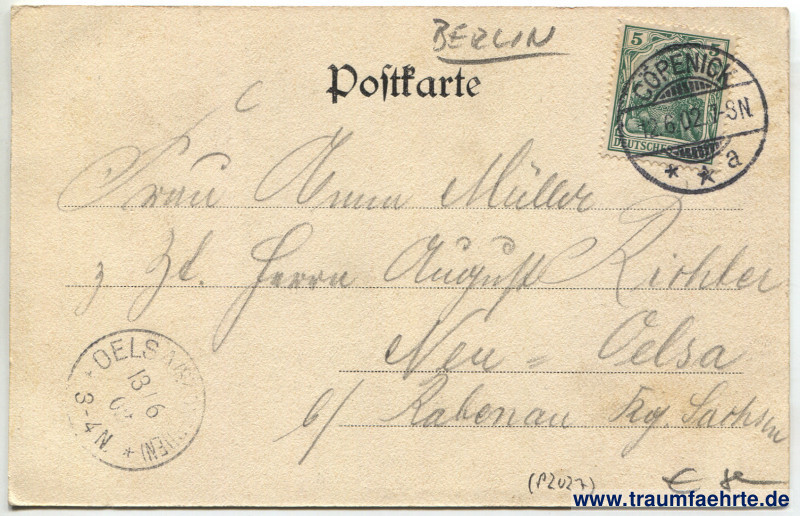 BERLIN
Postkarte
5
DEUTSCHES
CÖPENICK
12.6.02.1-8N.
* * a
Frau Anna Müller
z Zt. Herrn August Richter
Neu = Oelsa
b/ Rabenau Kg. Sachsen
OELSA
13/6
02
3-4N. *
(P2027)
www.traumfaehrte.de